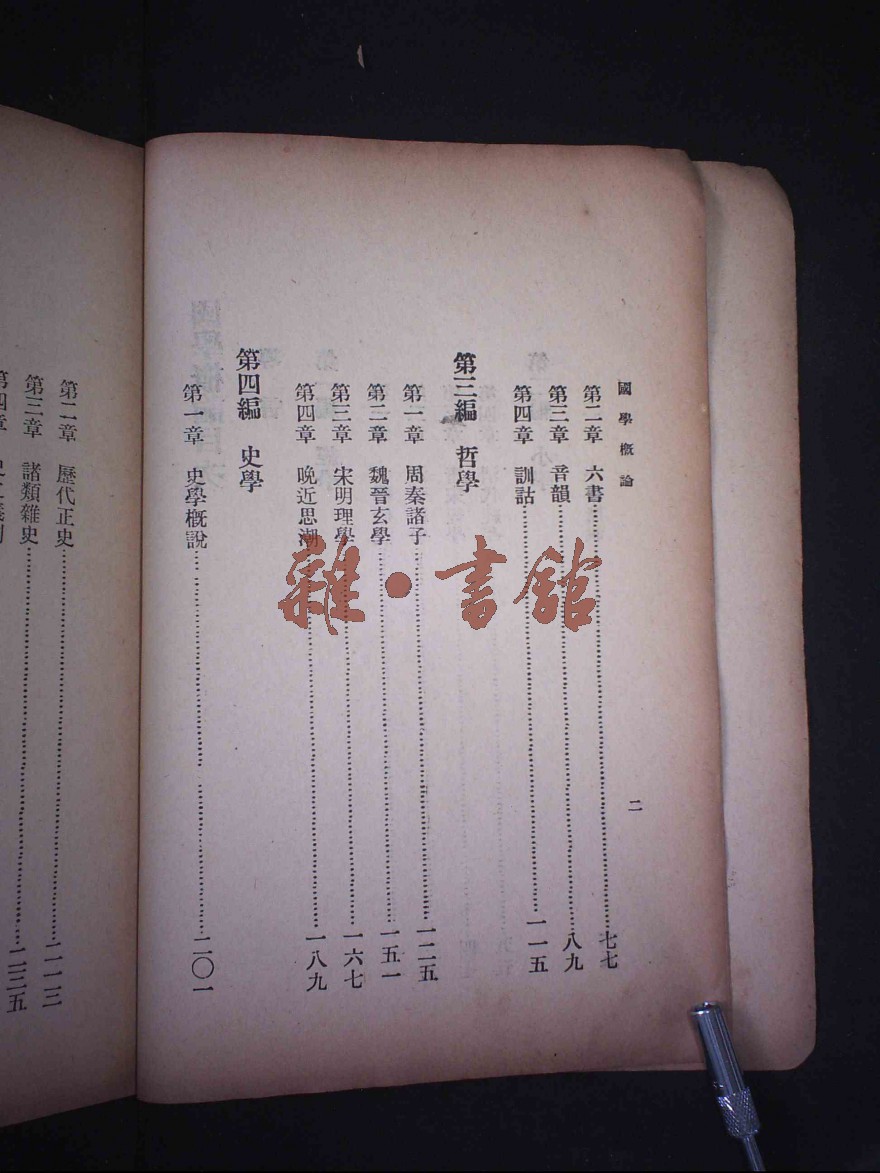 國學概論
二
第二章 六書 七七
第三章 音韻 八九
第四章 訓詁 一一五
第三編 哲學
第一章 周秦諸子 一二五
第二章 魏晉玄學 一五一
第三章 宋明理學 一六七
第四章 晚近思潮 一八九
第四編 史學
第一章 史學概說 二〇一
第二章 歷代正史 二一三
第三章 諸類雜史 二三五
第四章
雜·書館